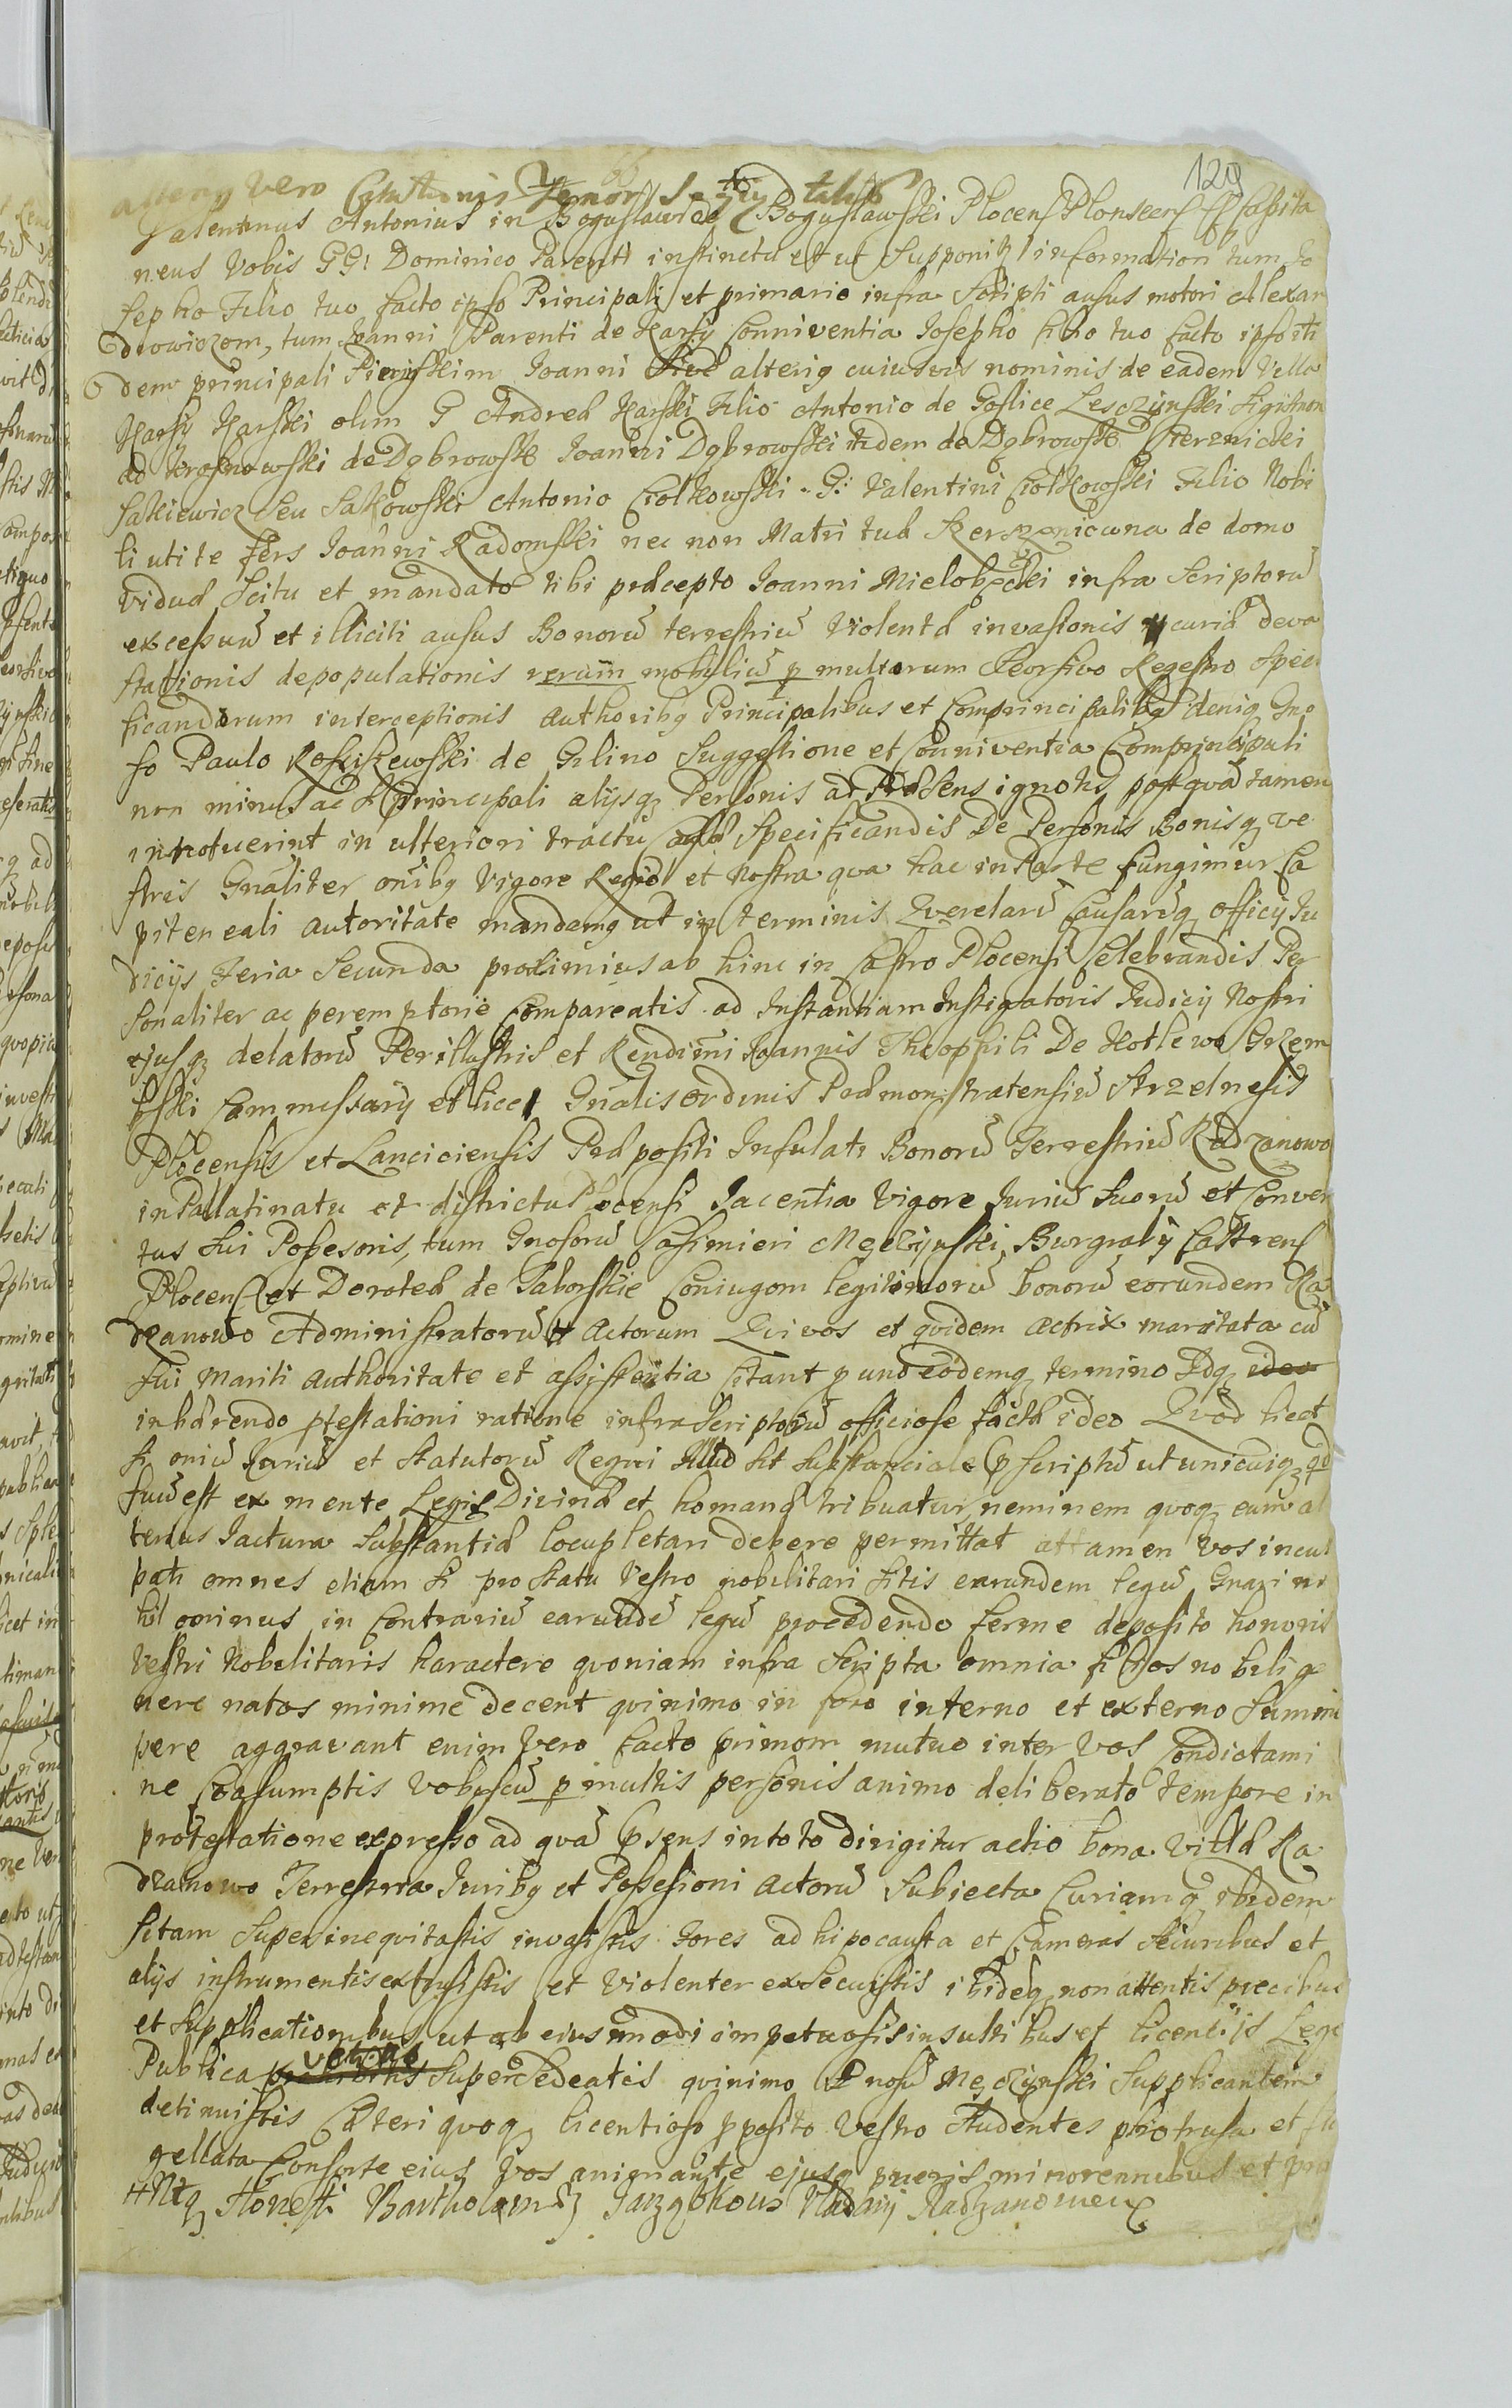 120
vero Citationis Tenor Seqtur talis
Valentinus Antonius in Bogusławice Bogusławski Plocens Plonscens Capita
neus Vobis GG: Dominico Parenti instinctu et ut Supponitz information tum Jo
sepho Filio tuo facto ipso Principali et primario infra Scripti ausus motori Alexan
drowiczom, tum Joanni Parenti de Karsy Conniventia Josepho filio tuo facto ipso iti
dem principali Joanni sive alteriq cuiusvis nominis de eadem Villa
Karsy Karski olim G Andreæ Karski Filio Antonio de Goslice Lesczynski Sigismon
do Krosnowski de Dąbrowsk Joanni Dąbrowski itidem de Dąbrowsk
Sakiewicz Seu Sakowski Antonio Ciołkowski G: Valentini Ciołkowski Filio Nobi
li Joanni Radomski nec non Matri tuæ de domo
viduæ Scitu et mandato tibi præcepto Joanni Mielobęcki infra Scriptorū
excessuū et illiciti ausus Bonorū terrestriū Violentæ invasionis curiæ deva
stationis depopulationis rerum mobiliū p multorum Seorsivo Regestro Speci
ficandorum interceptionis Authoribq Principalibus et Comprincipalibq deniq Gno
so Paulo Rosciszewski de Gilino Suggestione et Conniventia Comprincipali
non minus ac principali alysqz Personis ad Præsens ignotis postquā tamen
innotuerint in ulteriori tractu Specificandis De Personis Bonisqz ve
stris Gnaliter onibq Vigore Regia et Nostra qua hac in Parte fungimur Ca
piteneali autoritate mandamq ut in terminis Querelarū Causarūqz officy Ju
dicijs Feria Secunda proximius ab hinc in Castro Plocensi Celebrandis Per
sonaliter ac peremptorie Compareatis ad Instantiam Instigatoris Judicij Nostri
ejusqz delatorū Perillustris et Rendimi Joannis Theophili De Kotlewo Grzem
bski Commessarij et Gnalis ordinis Præmonstratensiū Strzelnesis
Plocensis et Lanciciensis Præpositi Infulati Bonorū Terrestriū Radzanowo
in Pallatinatu et districtu Plocensi Jacentia Vigore Juriū Suorū et Conven
tus Sui Possesoris, tum Gnosorū Casimieri Męczynski Burgrabij Castrens
Plocens et Dorotheæ de Taborskie Coniugom legitimorū bonorū eorundem Ra
dzanowo Administratorū # Actorum Qui vos et quidem actrix maritata cū
sui Mariti authoritate et assistentia Citant p uno eodemq termino Idq ideo
inhærendo ptestationi ratione infra Scriptorū officiose factæ ideo Quod licet
si oniū Juriū et Statutorū Regni Illud sit substanciale pscriptū ut unicuiqz qd
suū est ex mente Legis Divinæ et homanæ tribuatur, neminem quoqz cum al
terius Jactura Substantiæ locupletari debere permittat attamen Vos incul
pati omnes etiam si pro Statu Vestro nobilitari sitis earundem legū Gnari ni
hil ominus in Contrariū earundē legū procedendo ferme deposito honoris
Vestri Nobilitaris haractere quoniam infra Scripta omnia filios nobili ge
nere natos minime decent quinimo in foro interno et externo Summo
pere aggravant enim Vero facto primom mutuo inter Vos Condictami
ne Coasumptis Vobiscū p multis personis animo deliberato tempore in
protestatione expresso ad quā psens in toto dirigitur actio bona Villæ Ra
dzanowo Terrestria Juribq et Possesioni actorū Subiecta Curiamq ibidem
sitam Superinequitastis invasistis fores ad hipocausta et Cameras Securibus et
alijs instrumentis extrusistis et Violenter exsecuistis ibideqz non attentis precibus
et Supplicationibus ut ab eiusmodi impetuosis insultibus et licentijs Lege
Publica vetitis Supersedeatis quinimo Gnosū Męczynski Supplicantem
detinuistis Cæteri quoqz licentioso pposito Vestro Studentes protrusa et fla
gellata Consorte eius Vos animante ejusq pueris minorennibus et pro
#Nigz Honesti Bartholomei Vladarij Radzanoviens